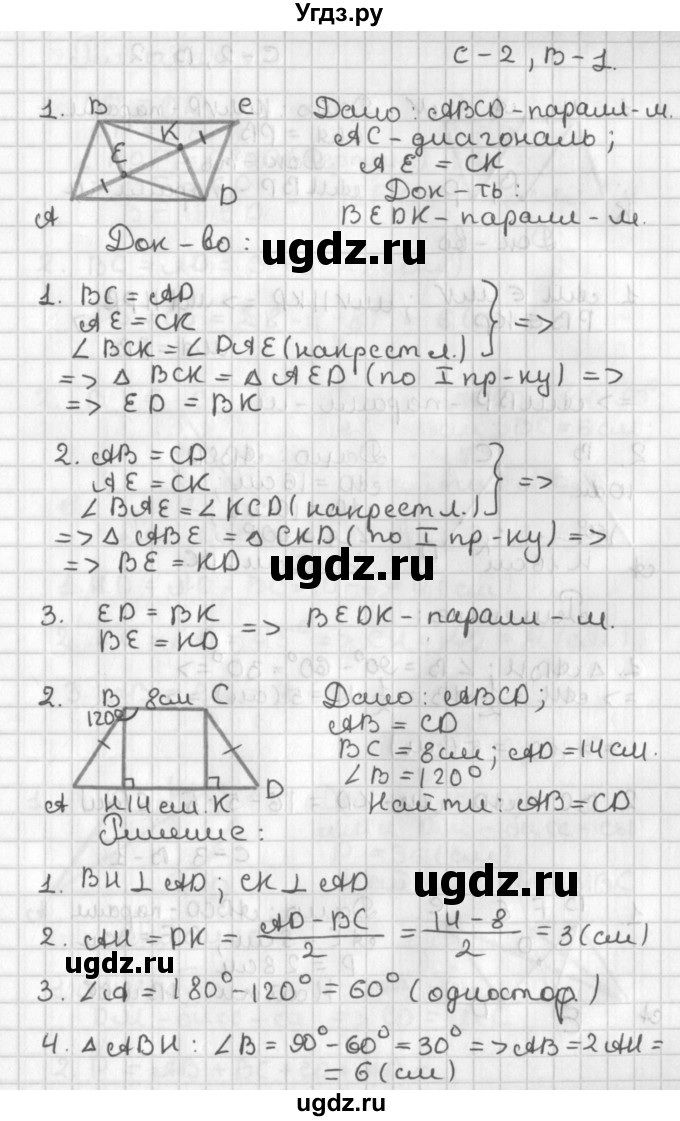 Угдз.ру
С-2, В-1.
1. B C Дано: ABCD-паралл-м.
K AC-диагональ;
E AE = CK
Док-ть:
A D BEDK-паралл-м.
Док-во:
ugdz.ru
1. BC = AD
AE = CK
∠BCK = ∠DAE (накрест л.) } =>
=> Δ BCK = Δ AED (по I пр-ку) =>
=> ED = BK
2. AB = CD
AE = CK
∠BAE = ∠KCD (накрест л.) } =>
=> Δ ABE = Δ CKD (по I пр-ку) =>
=> BE = KD
ugdz.ru
3. ED = BK
BE = KD => BEDK-паралл-м.
2. B 8см C Дано: ABCD;
120° AB = CD
BC = 8см; AD = 14см.
∠B = 120°
A H 14см. K D Найти: AB = CD
Решение:
ugdz.ru
1. BH ⊥ AD; CK ⊥ AD
2. AH = DK = (AD - BC)/2 = (14 - 8)/2 = 3 (см)
ugdz.ru
3. ∠A = 180° - 120° = 60° (одностор.)
4. Δ ABH: ∠B = 90° - 60° = 30° => AB = 2AH =
= 6 (см)
ugdz.ru